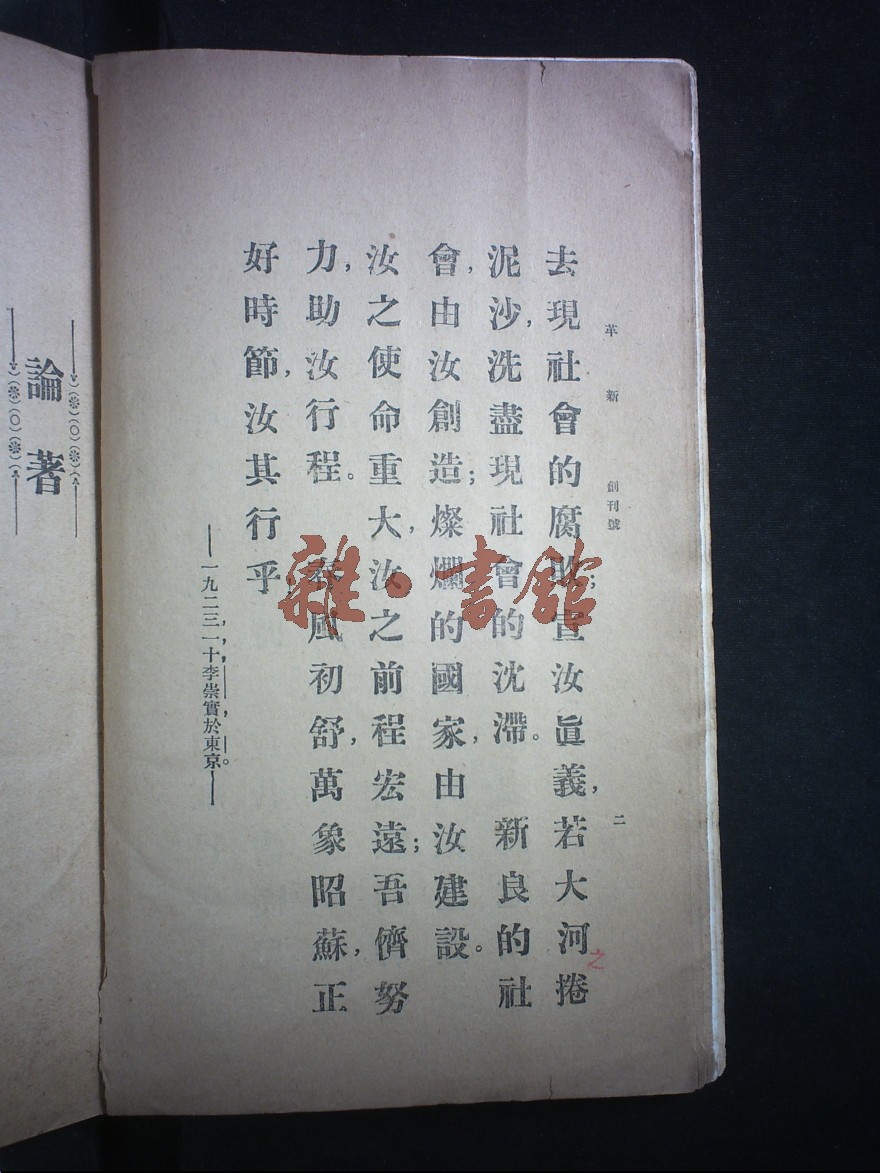 革新 創刊號 二
去現社會的腐敗;宣汝眞義,若大河捲
之
泥沙,洗盡現社會的沈滯。 新良的社
會,由汝創造;燦爛的國家,由汝建設。
汝之使命重大,汝之前程宏遠;吾儕努
力,助汝行程。 春風初舒,萬象昭蘇,正
好時節,汝其行乎
——一九二三,一,十,李崇實,於東京。——
論著
雜·書館